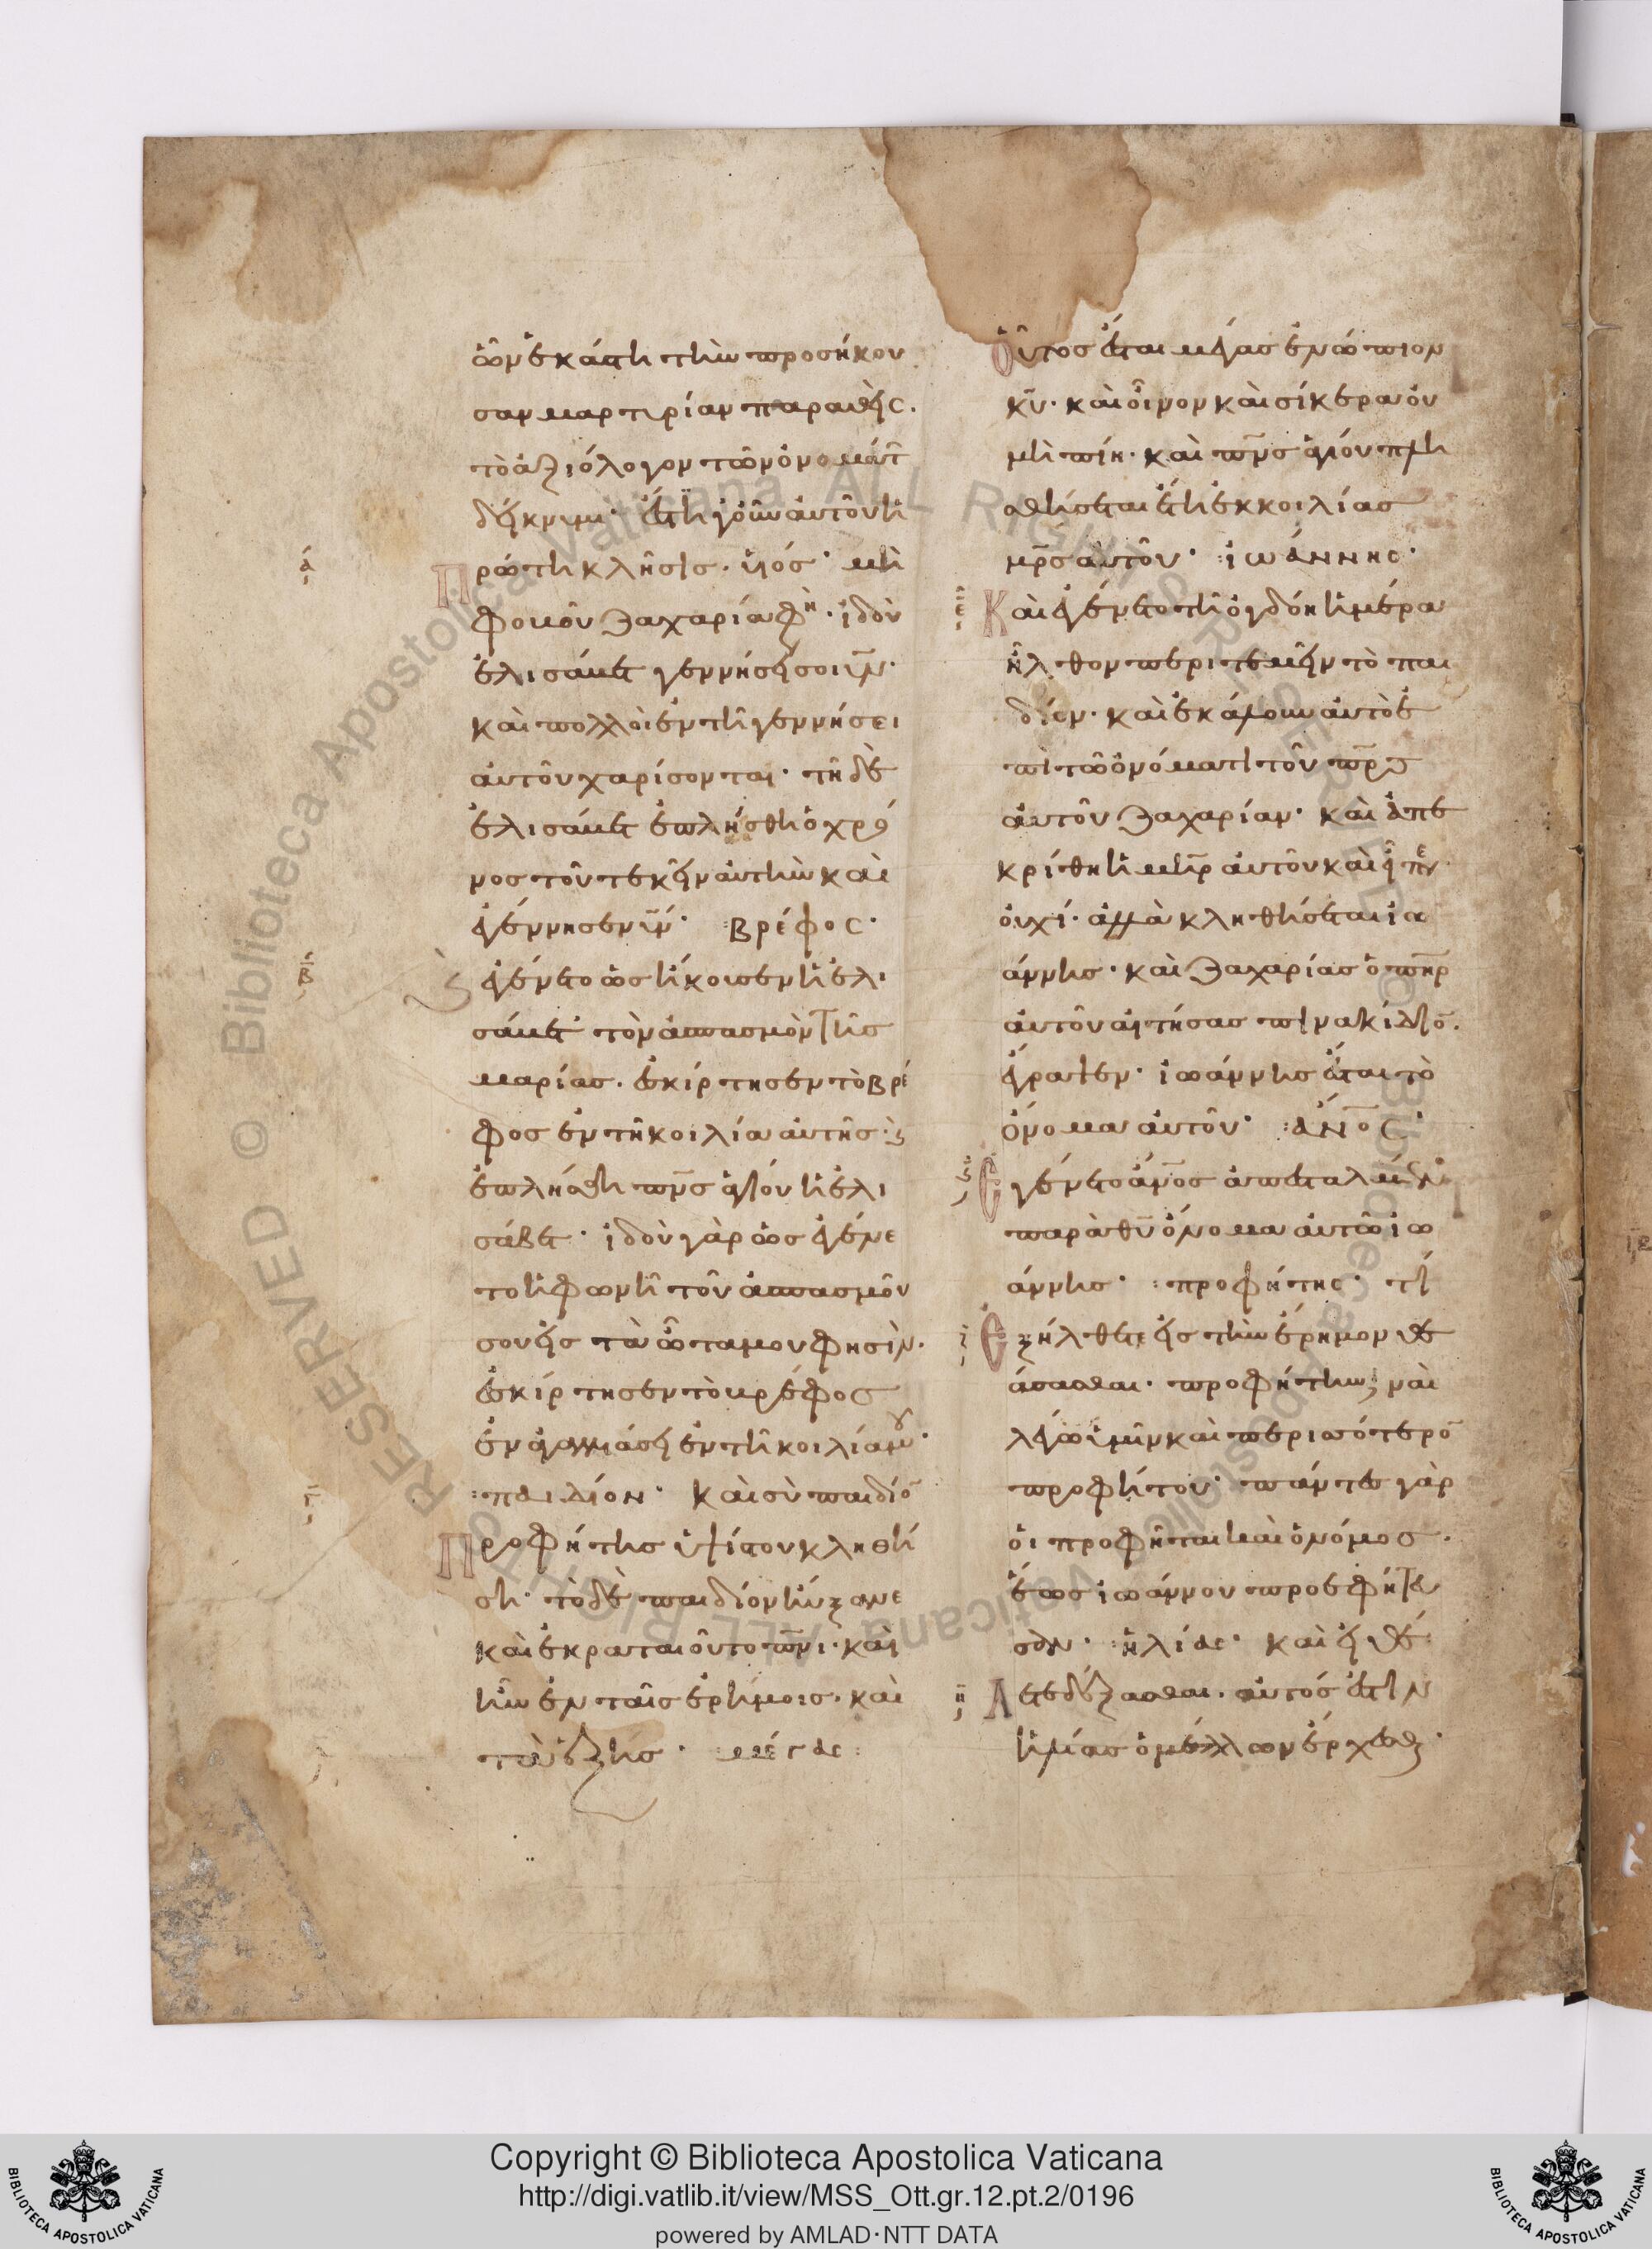 ὧν ἑκάστη τὴν προσήκου
σαν μαρτυρίαν παραθεὶς.
τὸ ἀξιόλογον τῶν ὀνομάτ
δείκνυμι· ἔστι γοῦν αὐτοῦ ἡ
ά
πρώτη κλῆσις. ὑιός· μὴ
φοβοῦ ζαχαρία φη· ἰδοὺ
ἐλισάβετ γεννήσει σοι ὑιν·
καὶ πολλοὶ ἐν τῆ γεννήσει
αὐτοῦ χαρίσονται· τῆ δὲ
ἐλισάβετ ἐπλήσθη ὁ χρό
νος τοῦ τεκεῖν αὐτὴν καὶ
ἐγέννησεν ὑιν· βρέφος·
β
ἐγένετο ὡς ἤκουσεν ἡ ἐλι
σάβετ τὸν ἀσπασμὸν τῆς
μαρίας. ἐσκίρτησεν τὸ βρέ
φος ἐν τῆ κοιλία αὐτῆς·
ἐπλήσθη πνς ἁγίου ἡ ἐλι
σάβετ· ἰδοὺ γὰρ ὡς ἐγένε
το ἡ φωνὴ τοῦ ἀσπασμοῦ
σου εἰς τὰ ὦτα μου φησὶν.
ἐσκίρτησεν τὸ βρέφος
ἐν ἀγαλλιάσει ἐν τῆ κοιλία μου·
γ
παιδίον· καὶ σὺ παιδίο
προφήτης ὑψίστου κληθή
ση· τὸ δὲ παιδίον ηὔξανε
καὶ ἐκραταιοῦτο πνι· καὶ
ἦν ἐν ταῖς ἐρήμοις. καὶ
τὰ ἑξῆς· μέγας
οὗτος ἔσται μέγας ἐνώπιον
κυ· καὶ οἶνον καὶ σίκερα οὐ
μὴ πίη· καὶ πνς ἁγίου πλη
σθήσεται ἔτι ἐκ κοιλίας
μρς αὐτοῦ· ἰωάννης·
ε
Καὶ ἐγένετο τῆ ὀγδόη ἡμέρα
ἦλθον περιτεμεῖν τὸ παι
δίον· καὶ ἐκάλουν αὐτὸ ἐ
πὶ τῶ ὀνόματι τοῦ πρς
αὐτοῦ ζαχαρίαν· καὶ ἀπε
κρίθη ἡ μηρ αὐτοῦ καὶ εἶπεν
οὐχί· ἀλλὰ κληθήσεται ἰω
άννης· καὶ ζαχαρίας ὁ πηρ
αὐτοῦ αἰτήσας πινακίδιο.
ἔγραψεν· ἰωάννης ἔσται τὸ
ὄνομα αὐτοῦ· ἄνος·
Ἐγένετο ἄνος ἀπεσταλμένος
παρὰ θυ ὄνομα αὐτῶ ἰω
άννης· προφήτης· τί
ζ
Ἐξήλθετε εἰς τὴν ἔρημον θε
άσασθαι· προφήτην; ναὶ
λέγω ὑμῖν καὶ περισσότερο
προφήτου· πάντες γὰρ
οἱ προφῆται καὶ ὁ νόμος.
ἕως ἰωάννου προεφήτευ
σαν· ἠλίας· καὶ εἰ θέ
η
λετε δέξασθαι. αὐτός ἐστιν
ἠλίας ὁ μέλλων ἔρχεσθαι·
Copyright © Biblioteca Apostolica Vaticana
http://digi.vatlib.it/view/MSS_Ott.gr.12.pt.2/0196
powered by AMLAD·NTT DATA
BIBLIOTECA APOSTOLICA VATICANA
BIBLIOTECA APOSTOLICA VATICANA